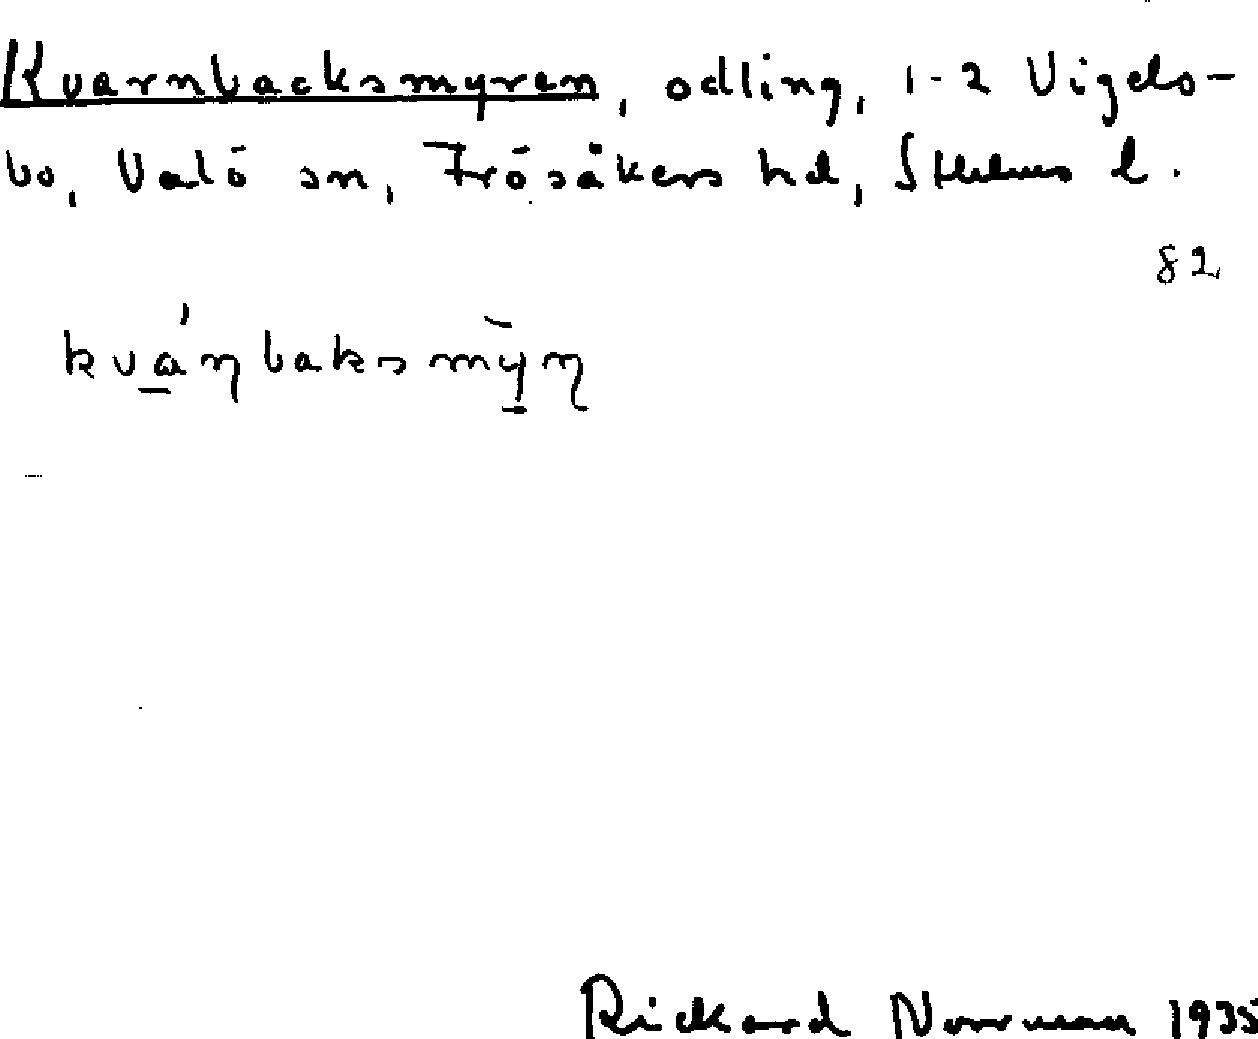 Kvarnbacksmyren, odling, 1-2 Vigels-
bo, Valö sn, Frösåkers hd, Sthlms l.
82
kvánbaksmỳn
Rickard Norrman 1935